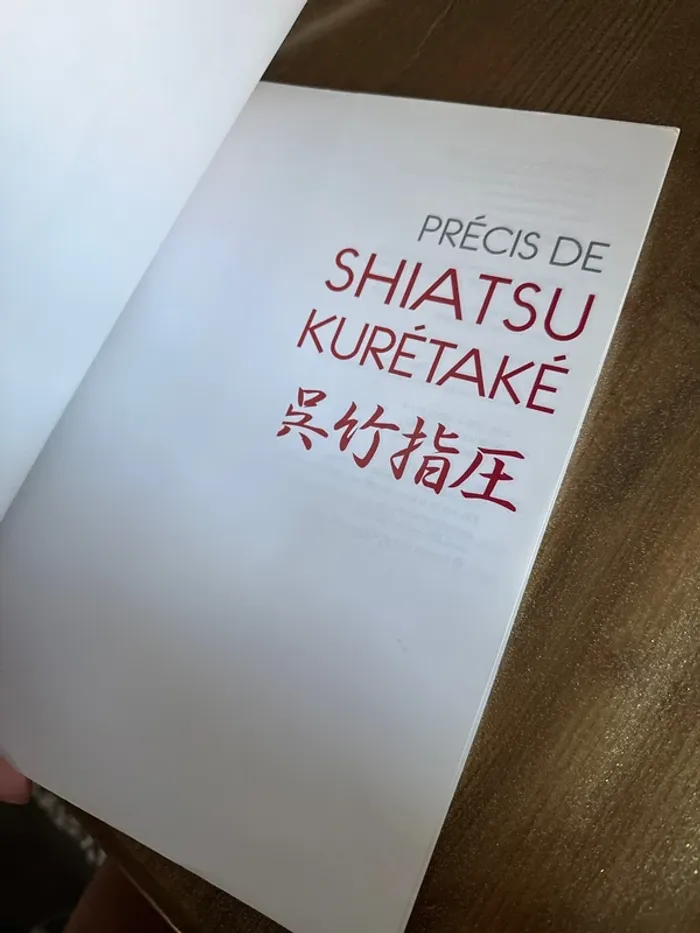 PRÉCIS DE
SHIATSU
KURÉTAKÉ
呉竹指圧